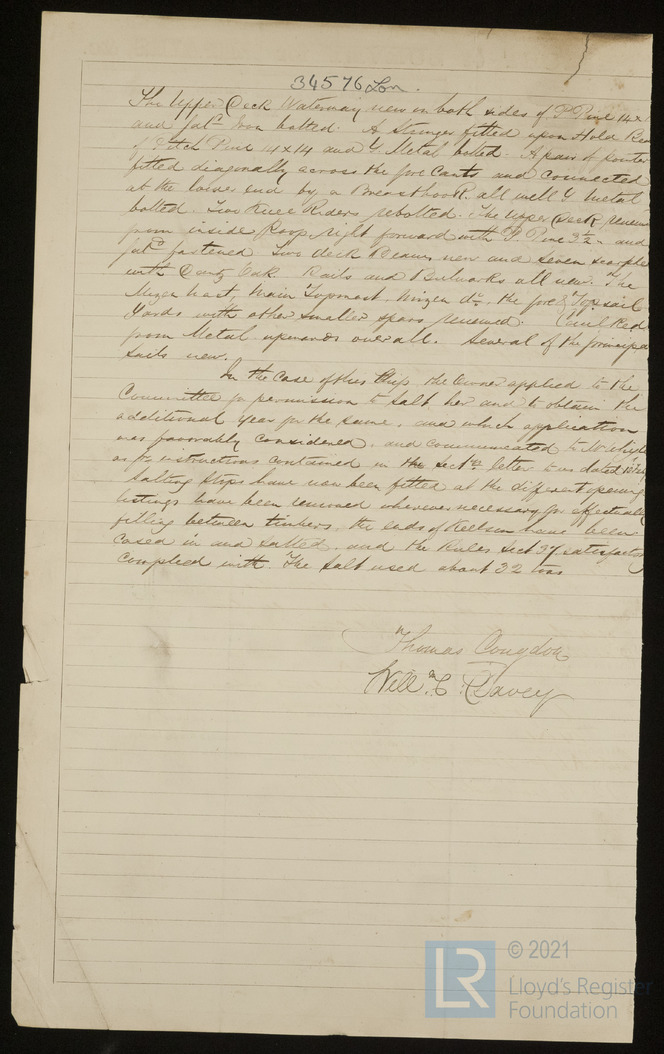 34576 Lon.
The Upper Deck Waterway new on both sides of P. Pine 14 x
and fatd Iron bolted. A Stringer fitted upon Hold Bea
of Pitch Pine 14 x 14 and Y. Metal bolted. A pair of pointer
fitted diagonally across the fore Cants and Connected
at the lower end by a Breasthook, all well Y Metal
bolted. Two Knee Riders rebolted. The Upper Deck renewe
from inside Poop, right forward with P. Pine 3½ and
fatd fastened Two deck Beams new and seven scarphe
with Oak Rails and Bulwarks all new. The
Mizen Mast, Main Topmast, Mizen do, the fore & Top sail
Yards with other smaller spars renewed. Caulked
from Metal upwards overall. Several of the principa
Sails new.
In the Case of this Ship, the Owner applied to the
Committee for permission to Salt her and to obtain the
additional Year for the same, and which application
was favorably considered, and communicated to Mr
as pr instructions contained in the Secty letter to us dated
Salting Stops have now been fitted at the different opening
listings have been removed wherever necessary for effectually
filling between timbers, the ends of Keelson have been
Cased in and Salted, and the Rules Sect 37 satisfactory
Complied with. The Salt used about 32 tons
Thomas Congdon
Will. H. Davey
© 2021
LR
Lloyd's Register
Foundation